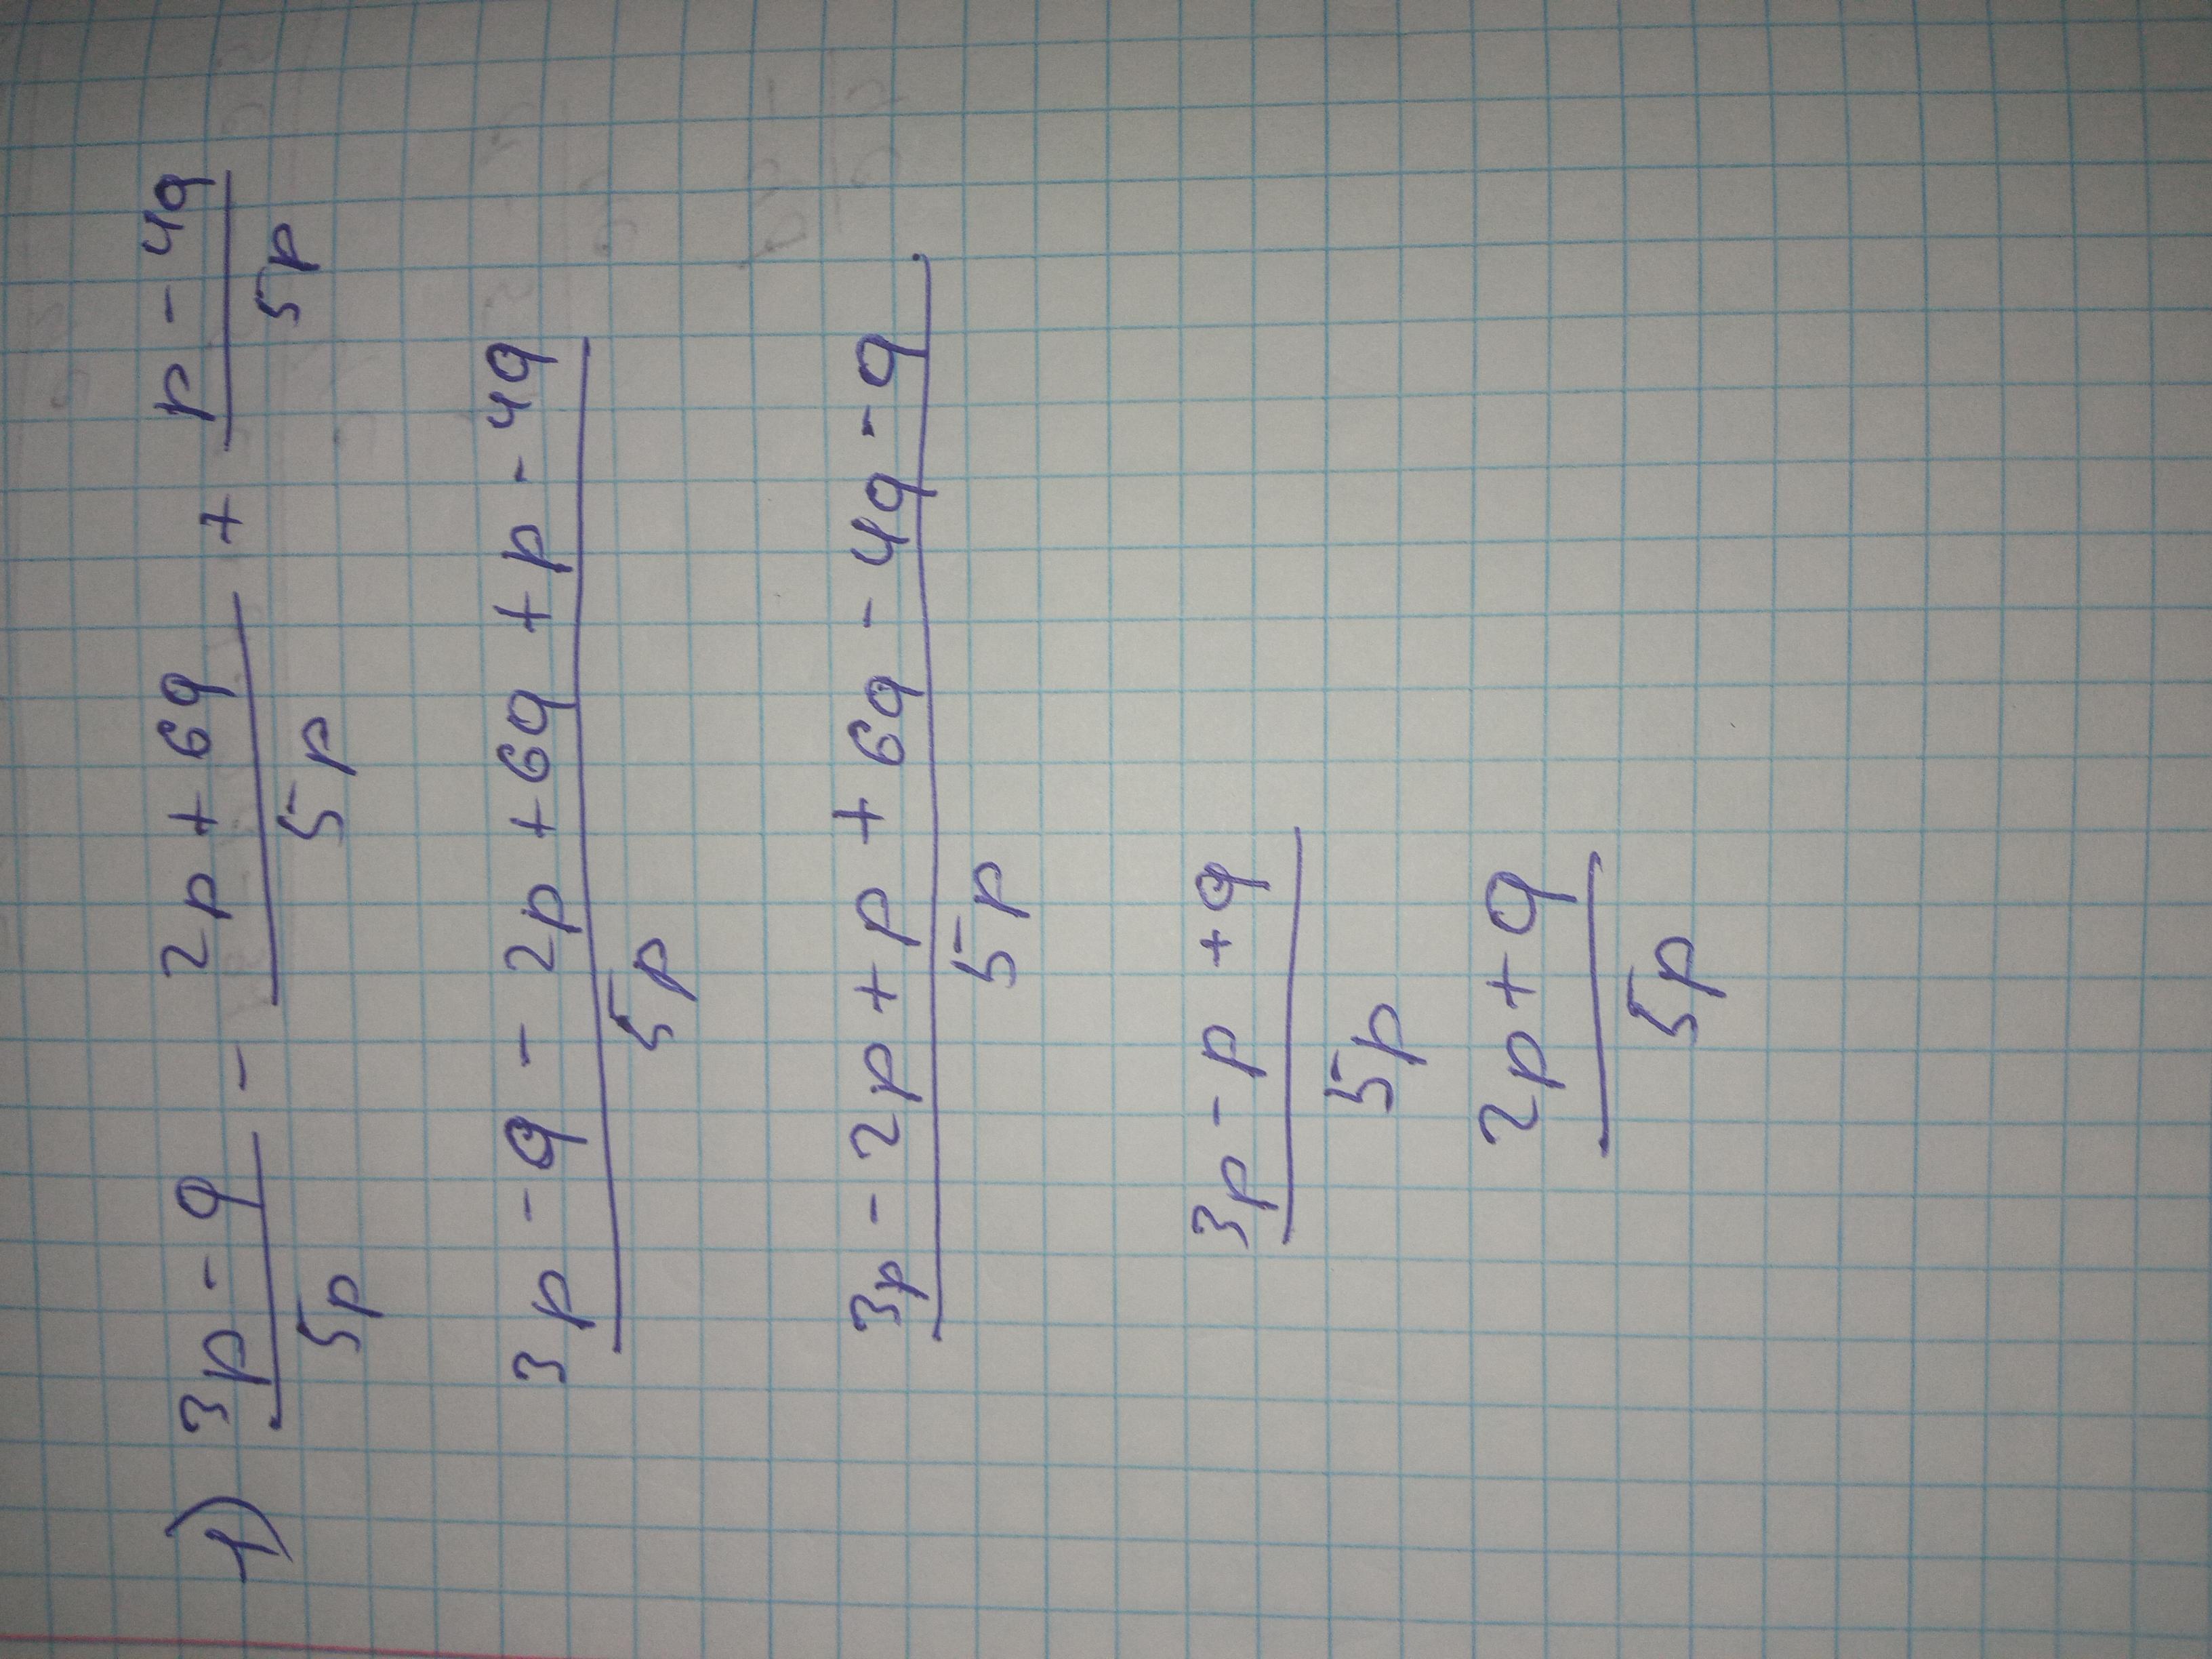 1) 3p - q / 5p - 2p + 6q / 5p + p - 4q / 5p
3p - q - 2p + 6q + p - 4q / 5p
3p - 2p + p + 6q - 4q - q / 5p
3p - p + q / 5p
2p + q / 5p